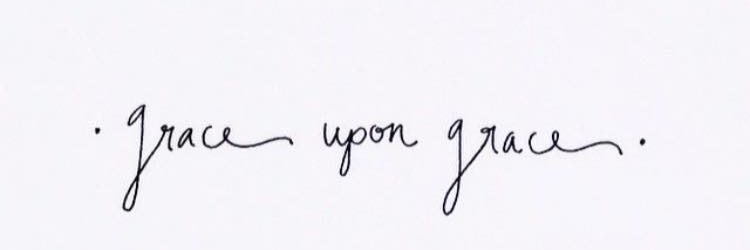 · grace upon grace ·